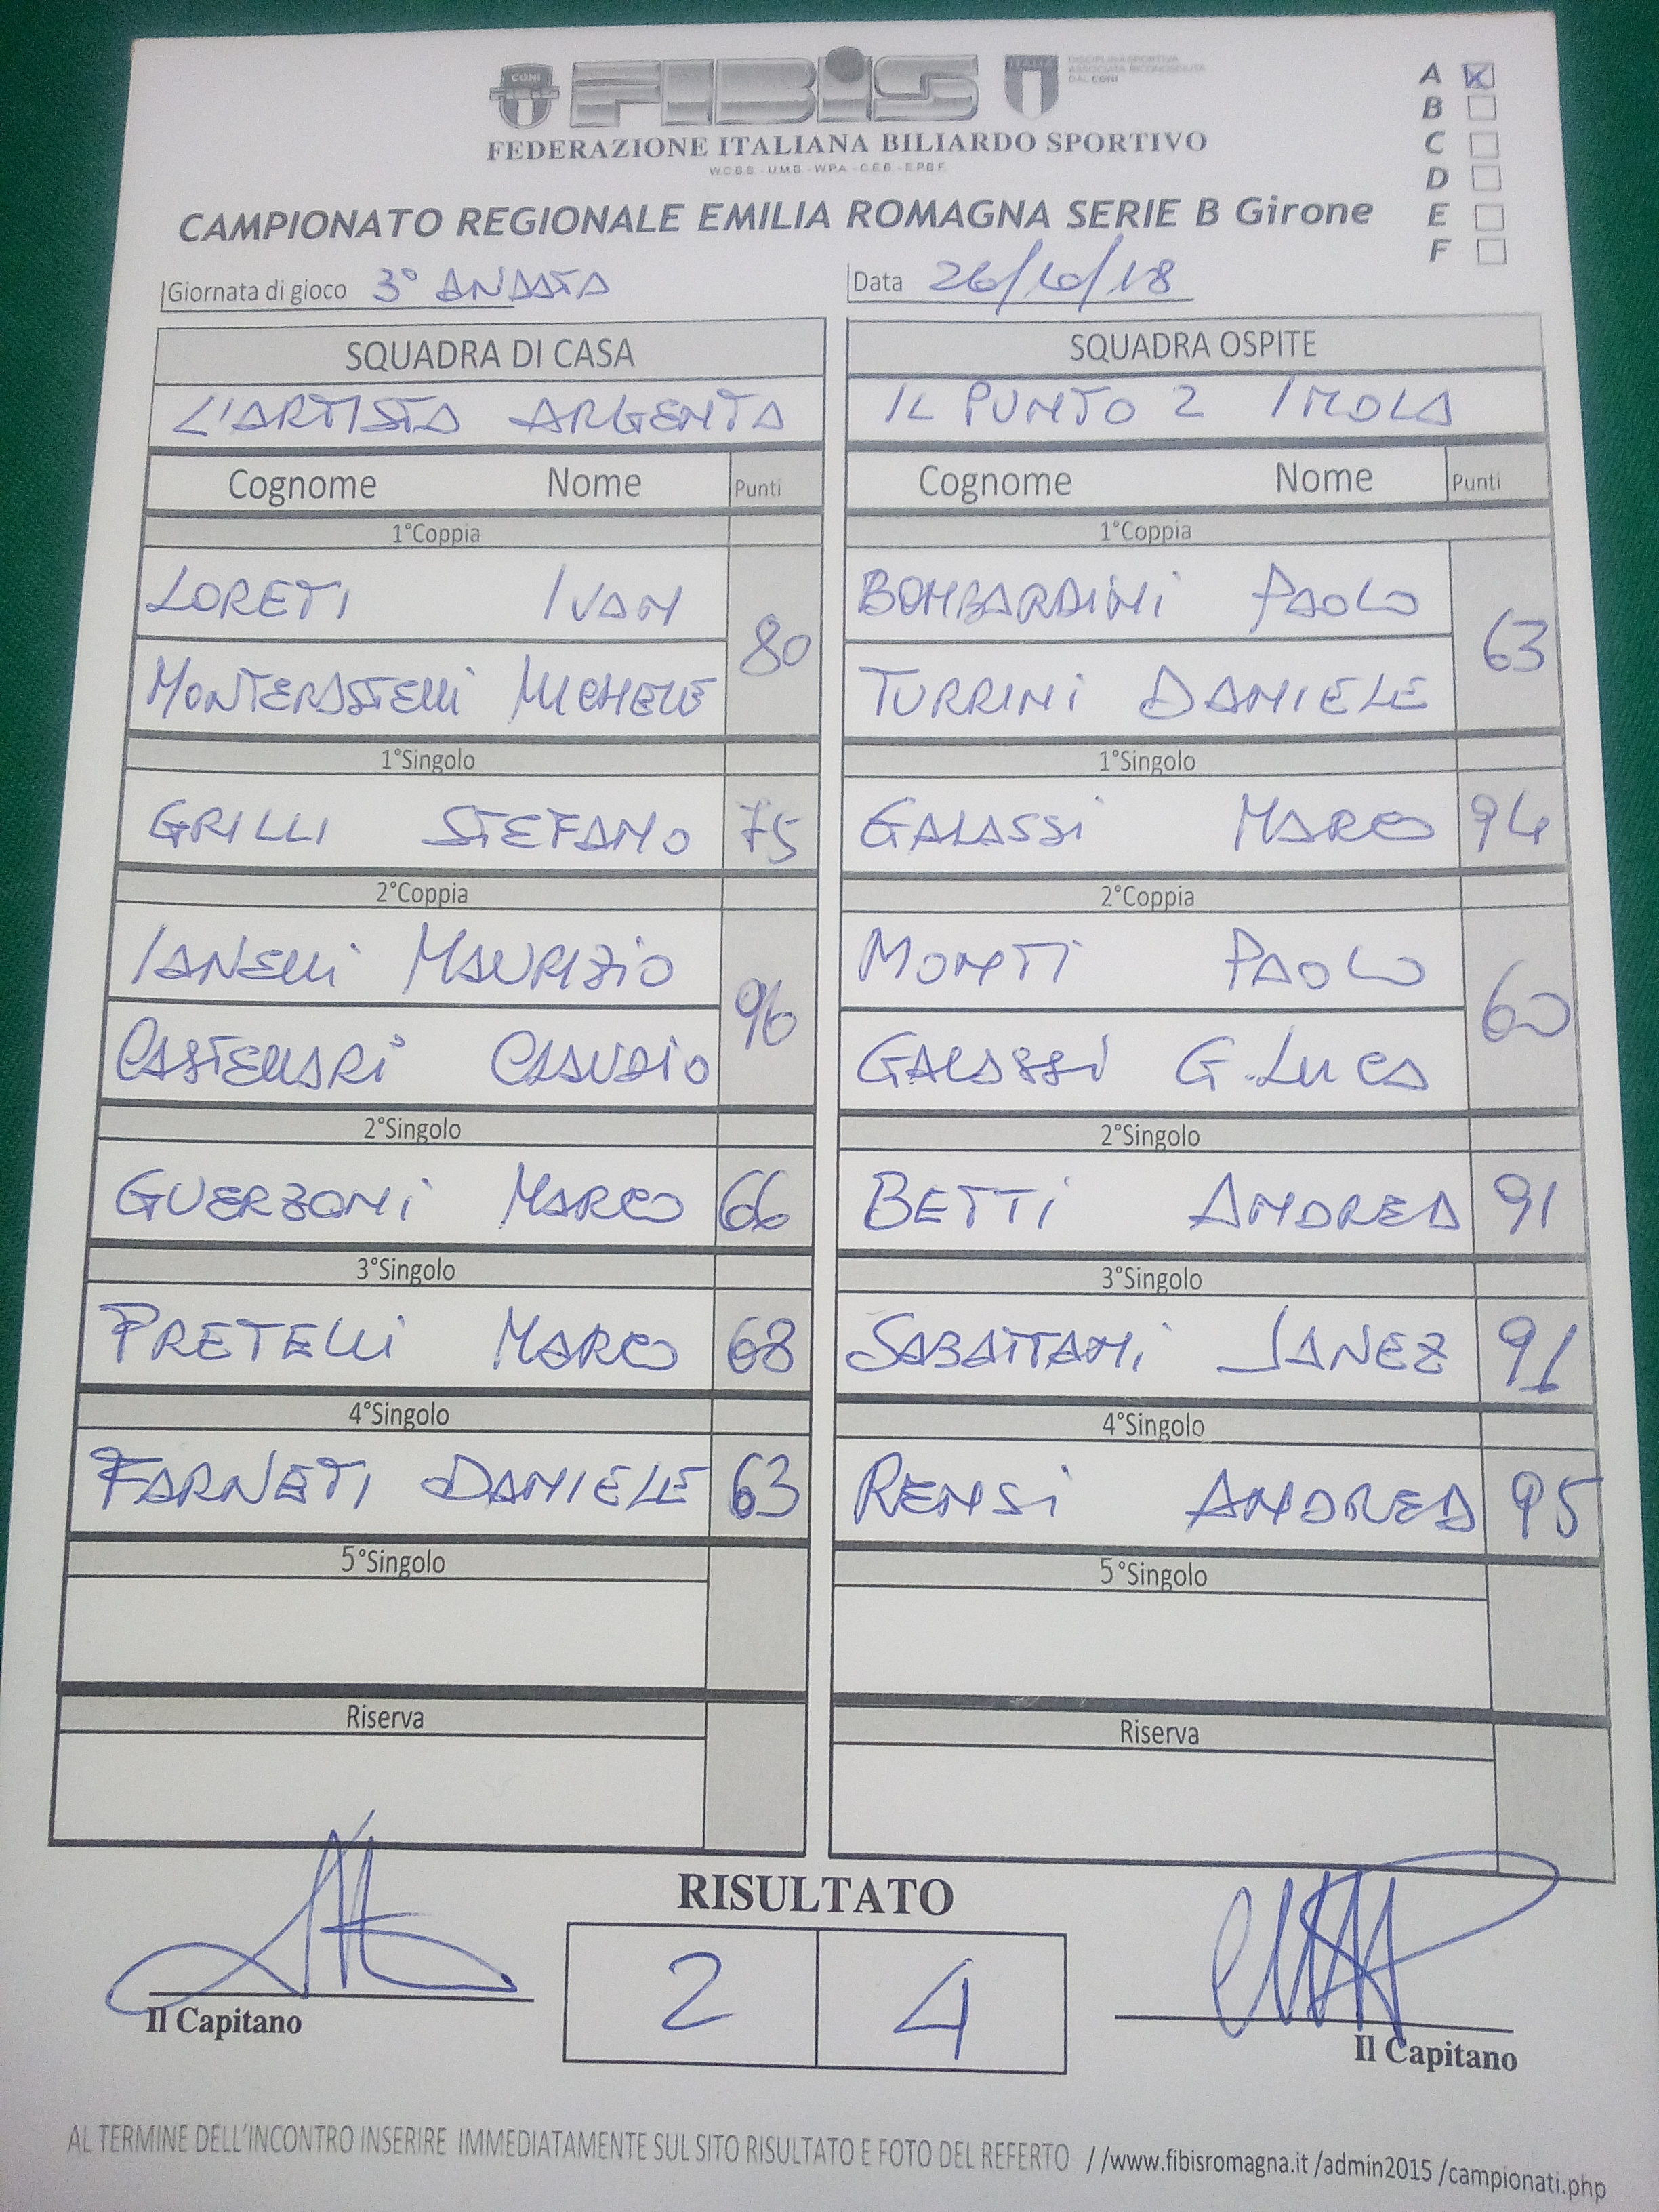 CONI
FIBiS
ITALIA
DISCIPLINA SPORTIVA
ASSOCIATA RICONOSCIUTA
DAL CONI
FEDERAZIONE ITALIANA BILIARDO SPORTIVO
W.C.B.S. - U.M.B. - W.P.A. - C.E.B. - E.P.B.F.
CAMPIONATO REGIONALE EMILIA ROMAGNA SERIE B Girone
A X
B
C
D
E
F
Giornata di gioco 3° ANDATA Data 26/10/18
SQUADRA DI CASA SQUADRA OSPITE
L'ARTISTA ARGENTA IL PUNTO 2 IMOLA
Cognome Nome Punti Cognome Nome Punti
1°Coppia 1°Coppia
LORETI IVAN BOMBARDINI PAOLO
80 63
MONTERASTELLI MICHELE TURRINI DANIELE
1°Singolo 1°Singolo
GRILLI STEFANO 75 GALASSI MARCO 94
2°Coppia 2°Coppia
IANELLI MAURIZIO MONTI PAOLO
96 60
CASTELLARI CLAUDIO GALASSI G.LUCA
2°Singolo 2°Singolo
GUERZONI MARCO 66 BETTI ANDREA 91
3°Singolo 3°Singolo
PRETELLI MARCO 68 SABATTANI JANEZ 91
4°Singolo 4°Singolo
FARNETI DANIELE 63 RENSI ANDREA 95
5°Singolo 5°Singolo
Riserva Riserva
RISULTATO
2 4
Il Capitano Il Capitano
AL TERMINE DELL'INCONTRO INSERIRE IMMEDIATAMENTE SUL SITO RISULTATO E FOTO DEL REFERTO //www.fibisromagna.it /admin2015 /campionati.php